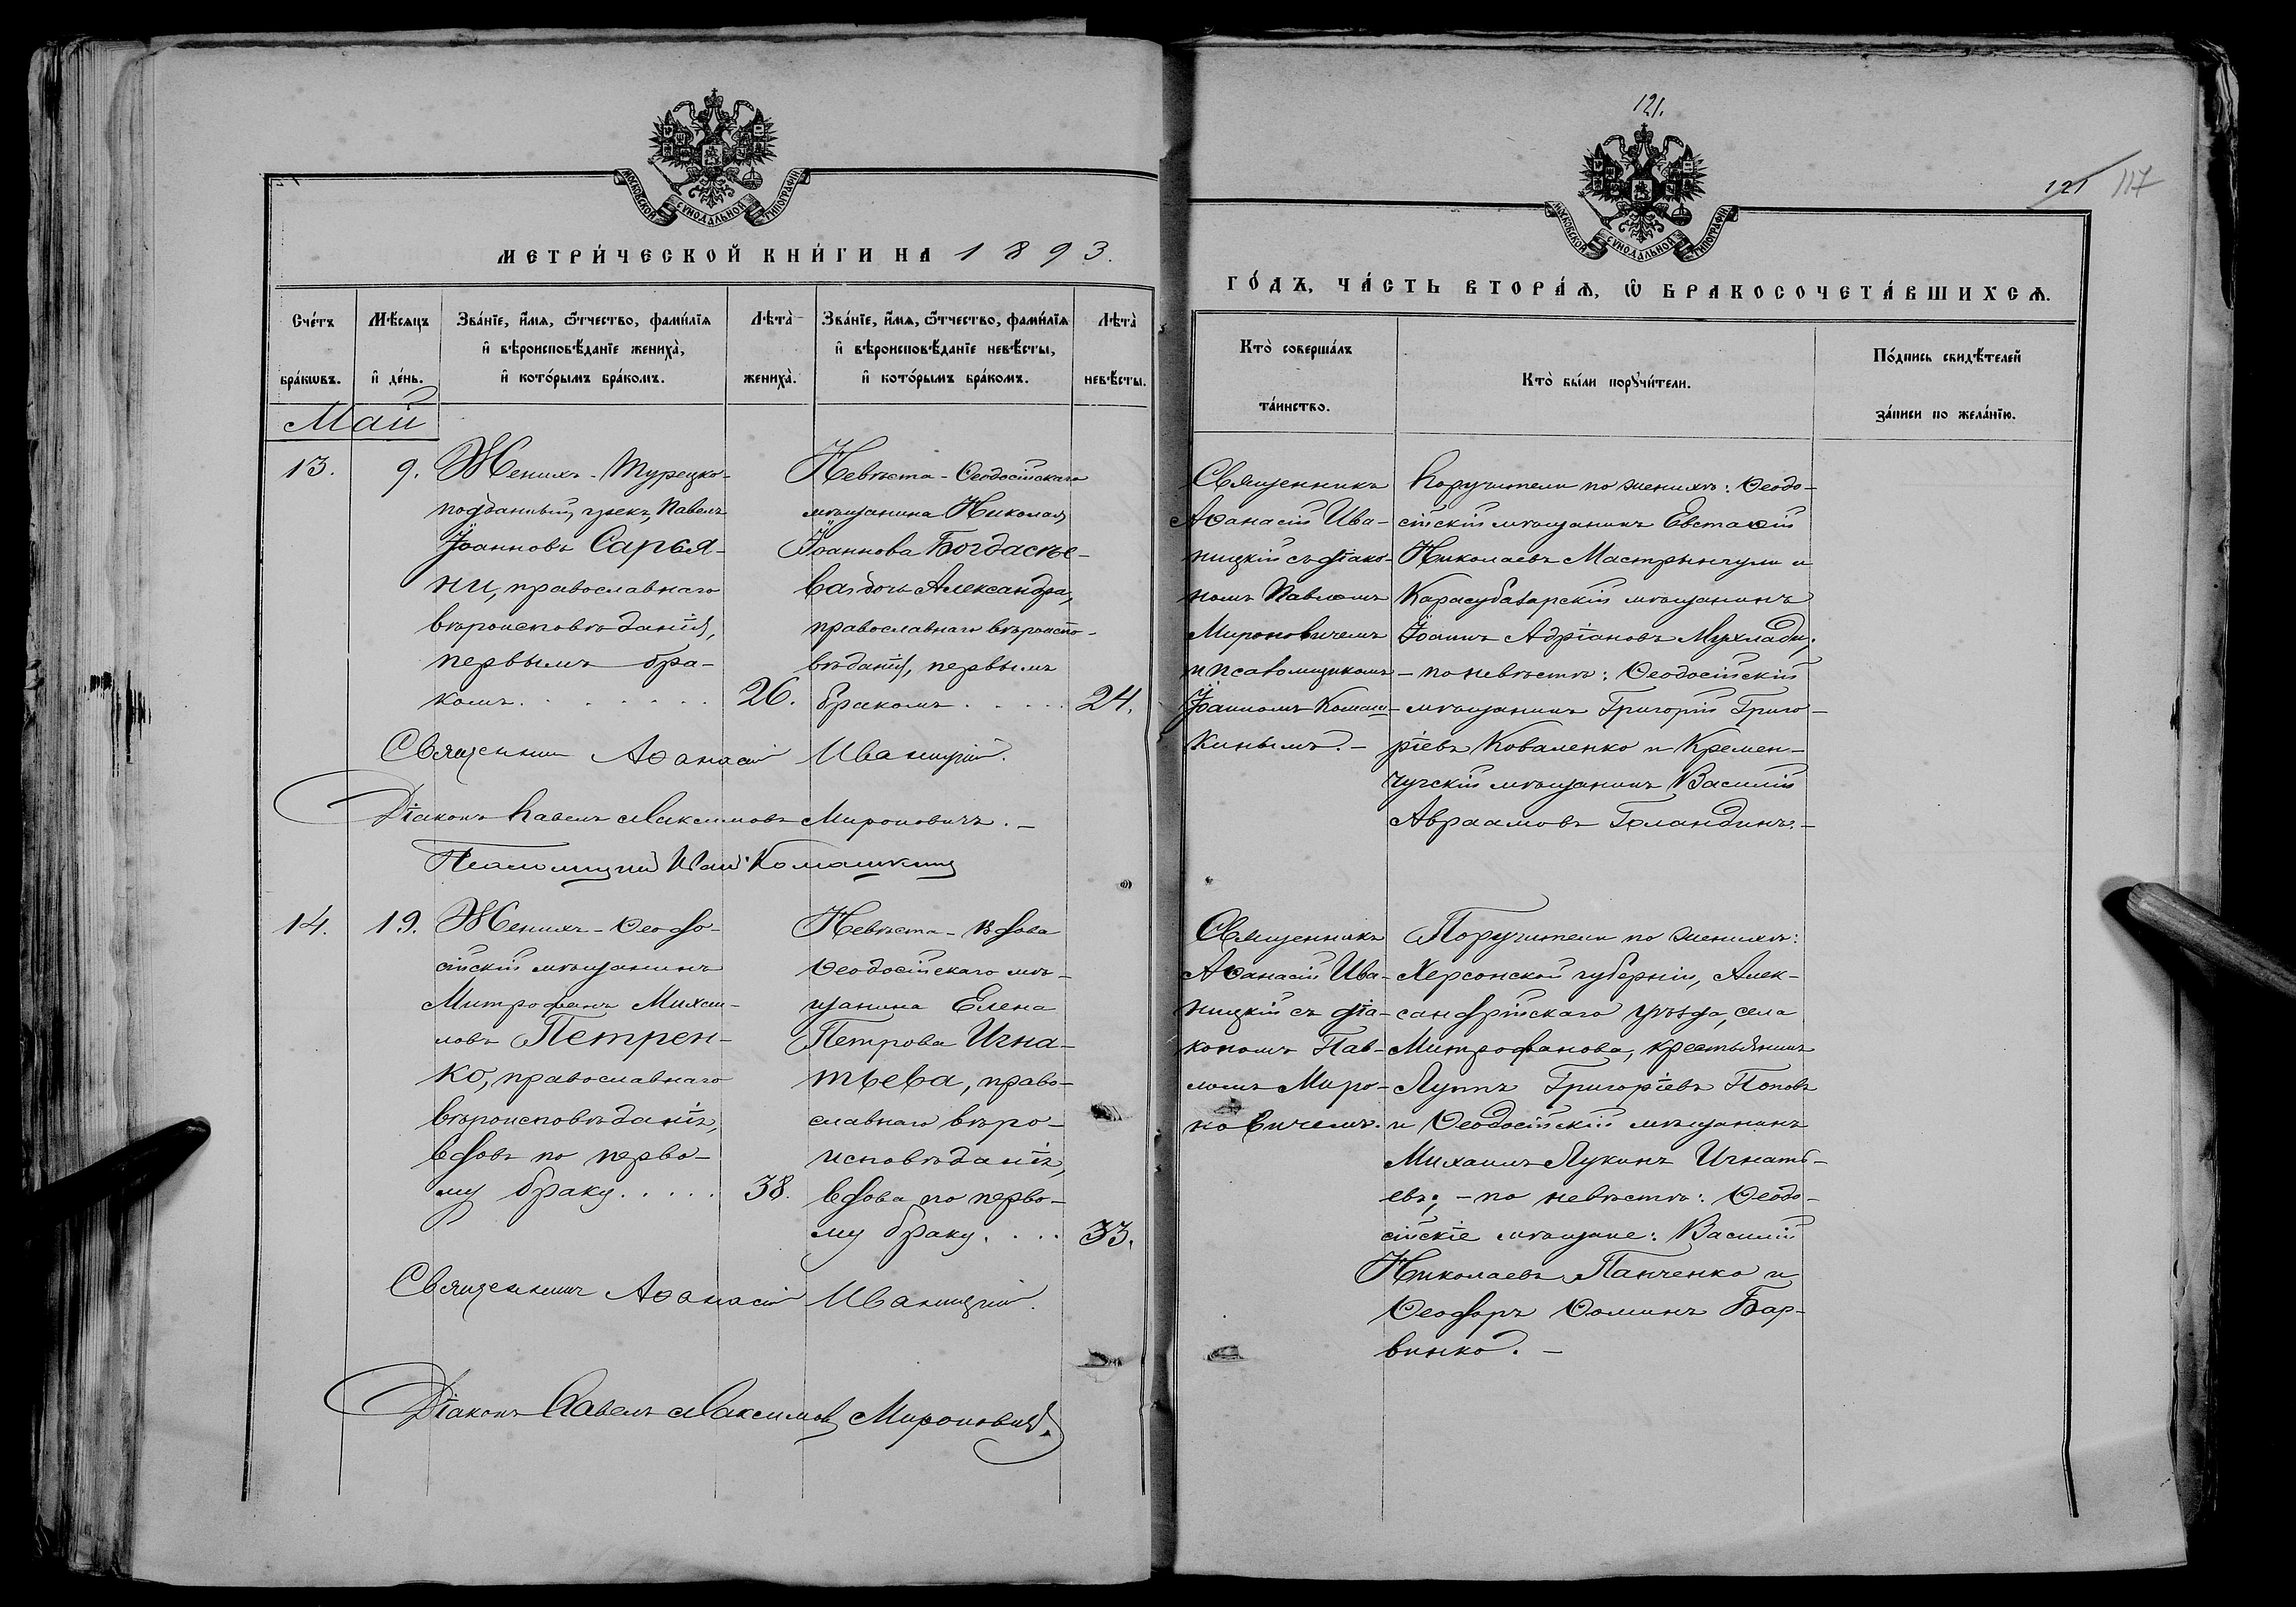 МОСКОВСКОЙ СѴНОДАЛЬНОЙ ТИПОГРАФІИ
МЕТРИ́ЧЕСКОЙ КНИ́ГИ НА 1893.
Сче́тъ бра́кѡвъ.
Мѣ́сѧцъ и҆ де́нь.
Зва́нїе, и҆́мѧ, ѻ҆́тчество, фами́лїѧ
и҆ вѣроисповѣ́данїе жениха̀,
и҆ кото́рымъ бра́комъ.
Лѣта̀
жениха̀.
Зва́нїе, и҆́мѧ, ѻ҆́тчество, фами́лїѧ
и҆ вѣроисповѣ́данїе невѣ́сты,
и҆ кото́рымъ бра́комъ.
Лѣта̀
невѣ́сты.
Май
13.
9.
Женихъ - Турецко-
подданный, грекъ, Павелъ
Іоанновъ Сарья-
ни, православнаго
вѣроисповѣданія,
первымъ бра-
комъ. . . . . . . .
26.
Невѣста - Ѳеодосійскаго
мѣщанина Николая
Іоаннова Богдасъе-
ва дочь Александра,
православнаго вѣроиспо-
вѣданія, первымъ
бракомъ . . . . .
24.
Священник Аѳанасій Иваницкій.
Діаконъ Павелъ Максимовъ Мироновичъ. –
Псаломщикъ Іоан Комашкинъ
14.
19.
Женихъ - Ѳеодо-
сійскій мѣщанинъ
Митрофанъ Михаи-
ловъ Петрен-
ко, православнаго
вѣроисповѣданія,
вдовъ по перво-
му браку. . . . .
38.
Невѣста - вдова
Ѳеодосійскаго мѣ-
щанина Елена
Петрова Игна-
тьева, право-
славнаго вѣро-
исповѣданія,
вдова по перво-
му браку. . . .
33.
Священникъ Аѳанасій Иваницкій.
Діаконъ Павелъ Максимовъ Мироновичъ.
121.
121 117
МОСКОВСКОЙ СѴНОДАЛЬНОЙ ТИПОГРАФІИ
ГО́ДЪ, ЧА́СТЬ ВТОРА́Ѧ, Ѡ҆ БРАКОСОЧЕТА́ВШИХСѦ.
Кто̀ соверша́лъ
та́инство.
Кто̀ бы́ли порꙋчи́тели.
По́дпись свидѣ́телей
за́писи по жела́нїю.
Священникъ
Аѳанасій Ива-
ницкій съ діако-
номъ Павломъ
Мироновичемъ
и псаломщикомъ
Іоанномъ Комаш-
кинымъ. –
Поручители по женихѣ: Ѳеодо-
сійскій мѣщанинъ Евстаѳій
Николаевъ Мастрынчули и
Карасубазарскій мѣщанинъ
Іоаннъ Адріановъ Мухлади;
– по невѣстѣ: Ѳеодосійскій
мѣщанинъ Григорій Григо-
ріевъ Коваленко и Кремен-
чугскій мѣщанинъ Василій
Авраамовъ Голандинъ. –
Священникъ
Аѳанасій Ива-
ницкій съ діа-
кономъ Пав-
ломъ Миро-
новичемъ.
Поручители по женихѣ:
Херсонской губерніи, Алек-
сандрійскаго уѣзда, села
Митрофанова, крестьянинъ
Луппъ Григоріевъ Поповъ
и Ѳеодосійскій мѣщанинъ
Михаилъ Лукинъ Игнать-
евъ; – по невѣстѣ: Ѳеодо-
сійскіе мѣщане: Василій
Николаевъ Панченко и
Ѳеодоръ Ѳоминъ Бар-
винко. –